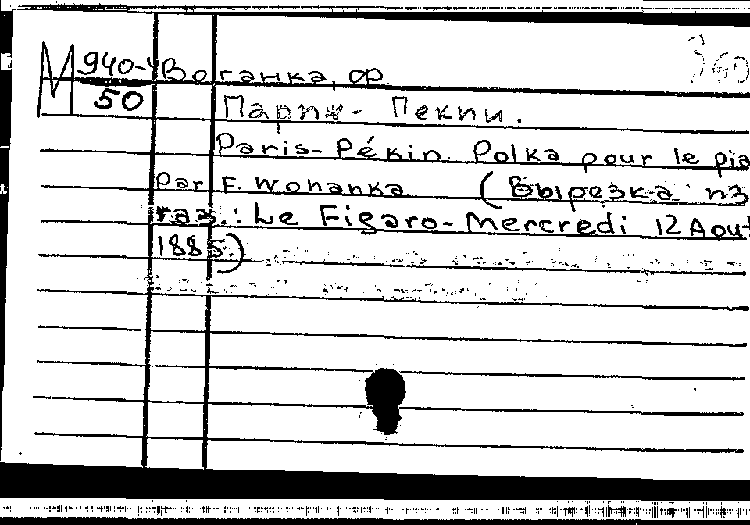 М 940-4 Воганка, Ф.
50 Париж- Пекин.
Paris-Pékin. Polka pour le pia
par F. Wohanka (Вырезка из
газ.: Le Figaro-Mercredi 12 Aout
1885.)